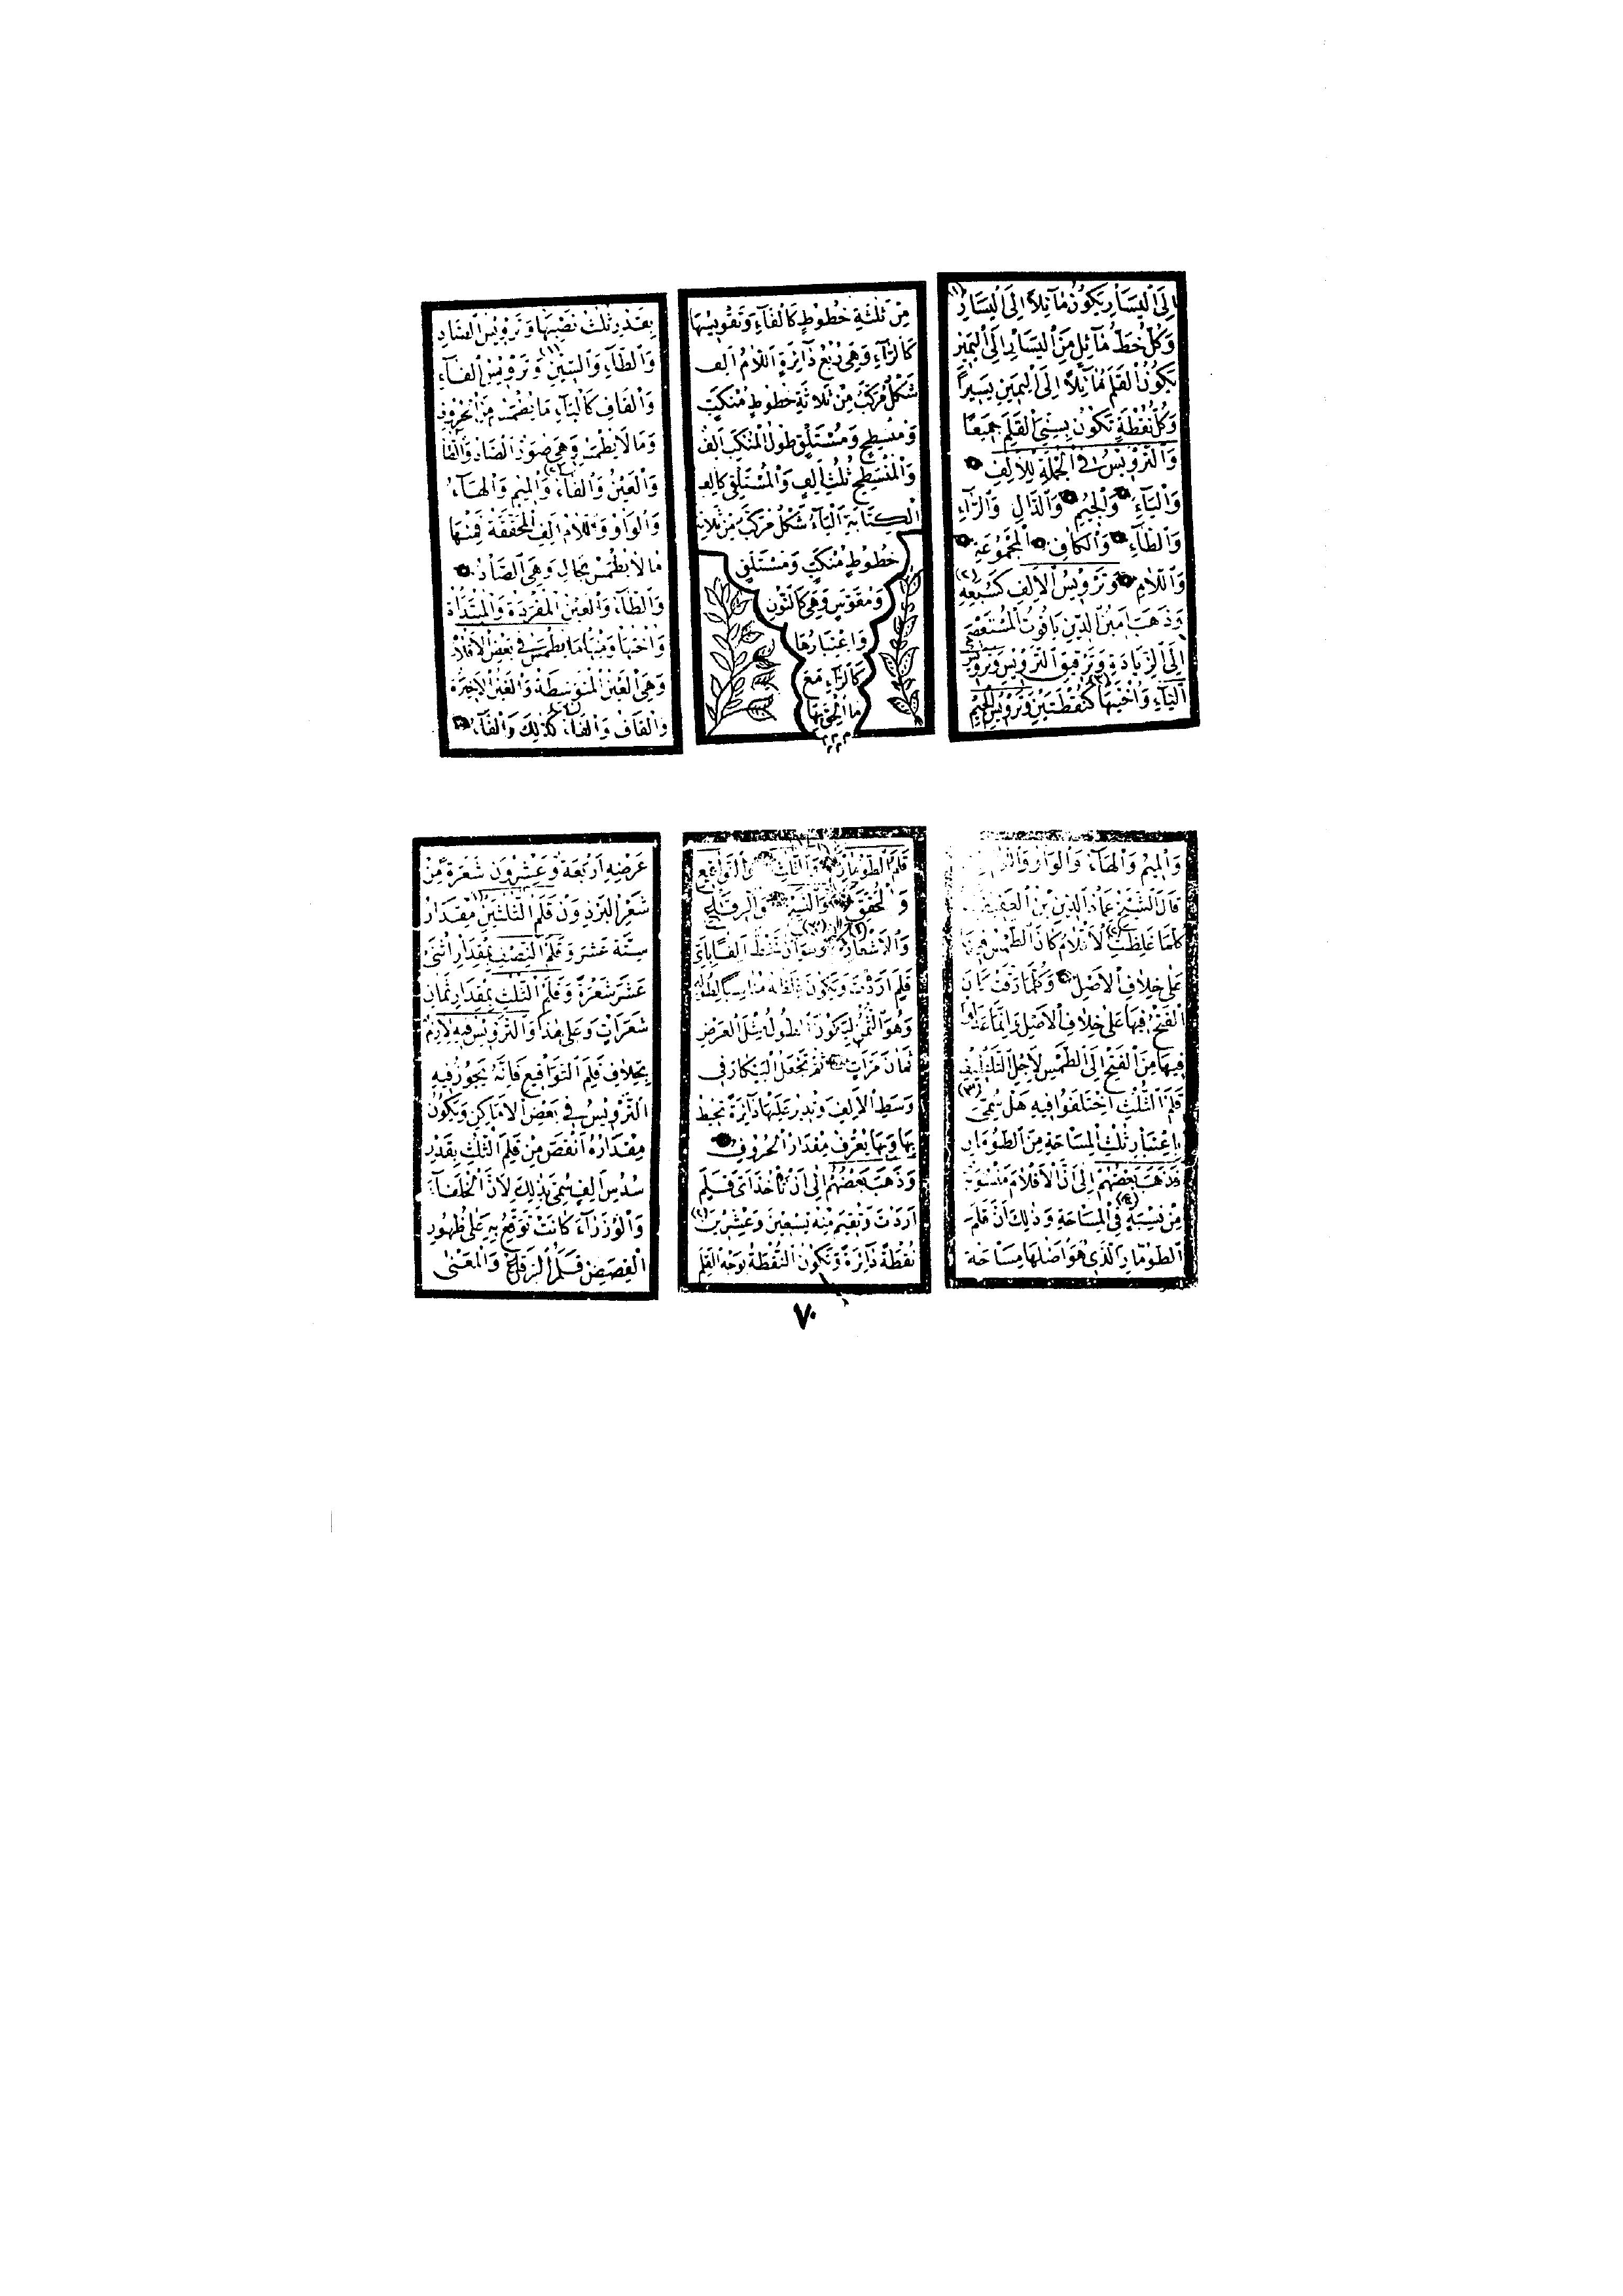 إِلَى الْيَسَارِ يَكُونُ مَآئِلاً إِلَى الْيَسَارِ (١)
وَكُلُّ خَطٍّ مَآئِلٍ مِنَ الْيَسَارِ إِلَى الْيَمِينِ
يَكُونُ الْقَلَمُ مَآئِلاً إِلَى الْيَمِينِ يَسِيراً
وَكُلُّ نُقْطَةٍ تَكُونُ بِسِنَّيِ الْقَلَمِ جَمِيعًا
وَالتَّرْوِيسُ فِي الْجُمْلَةِ لِلْأَلِفِ
وَالْبَآءِ وَالْجِيمِ وَالدَّالِ وَالرَّآءِ
وَالطَّآءِ وَالْكَافِ الْمَجْمُوعَةِ
وَاللَّامِ وَتَرْوِيسُ الْأَلِفِ كَسُبُعِهِ (٢)
وَذَهَبَ أَمِينُ الدِّينِ يَاقُوتُ الْمُسْتَعْصِمِي
إِلَى الزِّيَادَةِ وَتَرْقِيقِ التَّرْوِيسِ وَتَرْوِيسُ
الْبَآءِ وَأُخْتَيْهَا كَنُقْطَتَيْنِ وَتَرْوِيسُ الْجِيمِ
مِنْ ثَلَثَةِ خُطُوطٍ كَالْفَآءِ وَتَقْوِيسُهَا
كَالرَّآءِ وَهِيَ رُبْعُ دَآئِرَةٍ اَللَّامُ أَلِف
شَكْلٌ مُرَكَّبٌ مِنْ ثَلَاثَةِ خُطُوطٍ مُنْكَبٍّ
وَمُنْسَطِحٍ وَمُسْتَلْقٍ طُولُ الْمُنْكَبِّ أَلِف
وَالْمُنْسَطِحِ ثُلُثُ أَلِفٍ وَالْمُسْتَلْقِي كَأَلِفِ
الْكِتَابَةِ اَلْيَآءُ شَكْلٌ مُرَكَّبٌ مِنْ ثَلَاثَةِ
خُطُوطٍ مُنْكَبٍّ وَمُسْتَلْقٍ
وَمُقَوَّسٍ وَهِيَ كَالنُّونِ
وَاعْتِبَارُهَا
كَالرَّآءِ مَعَ
مَا أُلْحِقَ بِهَا
بِقَدْرِ ثُلُثِ نَصْبِهَا وَتَرْوِيسُ الصَّادِ
وَالطَّآءِ وَالسِّينِ (١) وَتَرْوِيسُ الْفَآءِ
وَالْقَافِ كَالْبَآءِ مَا يُطْمَسُ مِنَ الْحُرُوفِ
وَمَا لَا يُطْمَسُ وَهِيَ صُوَرُ الصَّادِ وَالطَّا
وَالْعَيْنُ وَالْفَآءُ وَالْمِيمُ وَالْهَآءُ
وَالْوَاوُ وَاللَّامُ أَلِفِ الْمُحَقَّقَةُ فَمِنْهَا
مَا لَا يُطْمَسُ بِحَالٍ وَهِيَ الصَّادُ
وَالطَّآءُ وَالْعَيْنُ الْمُفْرَدَةُ وَالْمُبْتَدَأَةُ
وَأُخْتُهَا وَمِنْهَا مَا يُطْمَسُ فِي بَعْضِ الْأَقْلَامِ
وَهِيَ الْعَيْنُ الْمُتَوَسِّطَةُ وَالْعَيْنُ الْأَخِيرَةُ
وَالْقَافُ وَالْفَآءُ كَذَلِكَ وَالْفَآءُ
وَالْمِيمُ وَالْهَآءُ وَالْوَاوُ
قَالَ الشَّيْخُ عِمَادُ الدِّينِ بْنُ الْعَفِيفِ
كُلَّمَا غَلُظَتِ الْأَقْلَامُ كَانَ الطَّمْسُ فِيهَا
عَلَى خِلَافِ الْأَصْلِ وَكُلَّمَا رَقَّتْ كَانَ
الْفَتْحُ فِيهَا عَلَى خِلَافِ الْأَصْلِ وَإِنَّمَا عَدَلُوا
فِيهَا مِنَ الْفَتْحِ إِلَى الطَّمْسِ لِأَجْلِ التَّلْطِيفِ
قَلَمُ الثُّلُثِ اخْتَلَفُوا فِيهِ هَلْ سُمِّيَ (٣)
بِاعْتِبَارِ ثُلُثِ الْمِسَاحَةِ مِنَ الطُّومَارِ
فَذَهَبَ بَعْضُهُمْ إِلَى أَنَّ الْأَقْلَامَ مَنْسُوبَةٌ
مِنْ نِسْبَةٍ (٤) فِي الْمِسَاحَةِ وَذَلِكَ أَنَّ قَلَمَ
الطُّومَارِ الَّذِي هُوَ أَصْلُهَا مِسَاحَة
قَلَمُ الطُّومَارِ وَالثُّلُثِ وَالتَّوَاقِيعِ
وَالْمُحَقَّقِ وَالنَّسْخِ وَالرِّقَاعِ
وَالْأَشْعَارِ وَهُوَ أَنْ تَخُطَّ أَلِفًا بِأَيِّ
قَلَمٍ أَرَدْتَ وَيَكُونُ غِلَظُهُ مُنَاسِبًا لِطُولِهِ
وَهُوَ الثُّمْنُ لِيَكُونَ الطُّولُ مِثْلَ الْعَرْضِ
ثَمَانَ مَرَّاتٍ ثُمَّ تَجْعَلُ الْبِيكَارَ فِي
وَسَطِ الْأَلِفِ وَتُدِيرُ عَلَيْهَا دَآئِرَةً تُحِيطُ
بِهَا وَبِهَا يُعْرَفُ مِقْدَارُ الْحُرُوفِ
وَذَهَبَ بَعْضُهُمْ إِلَى أَنْ تَأْخُذَ أَيَّ قَلَمٍ
أَرَدْتَ وَتُقِيمَ مِنْهُ تِسْعِينَ وَعِشْرِينَ (١)
نُقْطَةً دَآئِرَةً وَتَكُونُ النُّقْطَةُ بِوَجْهِ الْقَلَمِ
عَرْضِهِ أَرْبَعَةٌ وَعِشْرُونَ شَعْرَةً مِنْ
شَعْرِ الْبِرْذَوْنِ قَلَمُ الثُّلُثَيْنِ مِقْدَارُ (١)
سِتَّةَ عَشَرَ وَقَلَمُ النِّصْفِ بِمِقْدَارِ اثْنَيْ
عَشَرَ شَعْرَةً وَقَلَمُ الثُّلُثِ بِمِقْدَارِ ثَمَانِ
شَعَرَاتٍ وَعَلَى هَذَا وَالتَّرْوِيسُ فِيهِ لَازِمٌ
بِخِلَافِ قَلَمِ التَّوَاقِيعِ فَإِنَّهُ يَجُوزُ فِيهِ
التَّرْوِيسُ فِي بَعْضِ الْأَمَاكِنِ وَيَكُونُ
مِقْدَارُهُ أَنْقَصَ مِنْ قَلَمِ الثُّلُثِ بِقَدْرِ
سُدُسِ أَلِفٍ سُمِّيَ بِذَلِكَ لِأَنَّ الْخُلَفَآءَ
وَالْوُزَرَآءَ كَانَتْ تُوَقِّعُ بِهِ عَلَى ظُهُورِ
الْقِصَصِ قَلَمُ الرِّقَاعِ وَالْمَعْنَى
٧٠